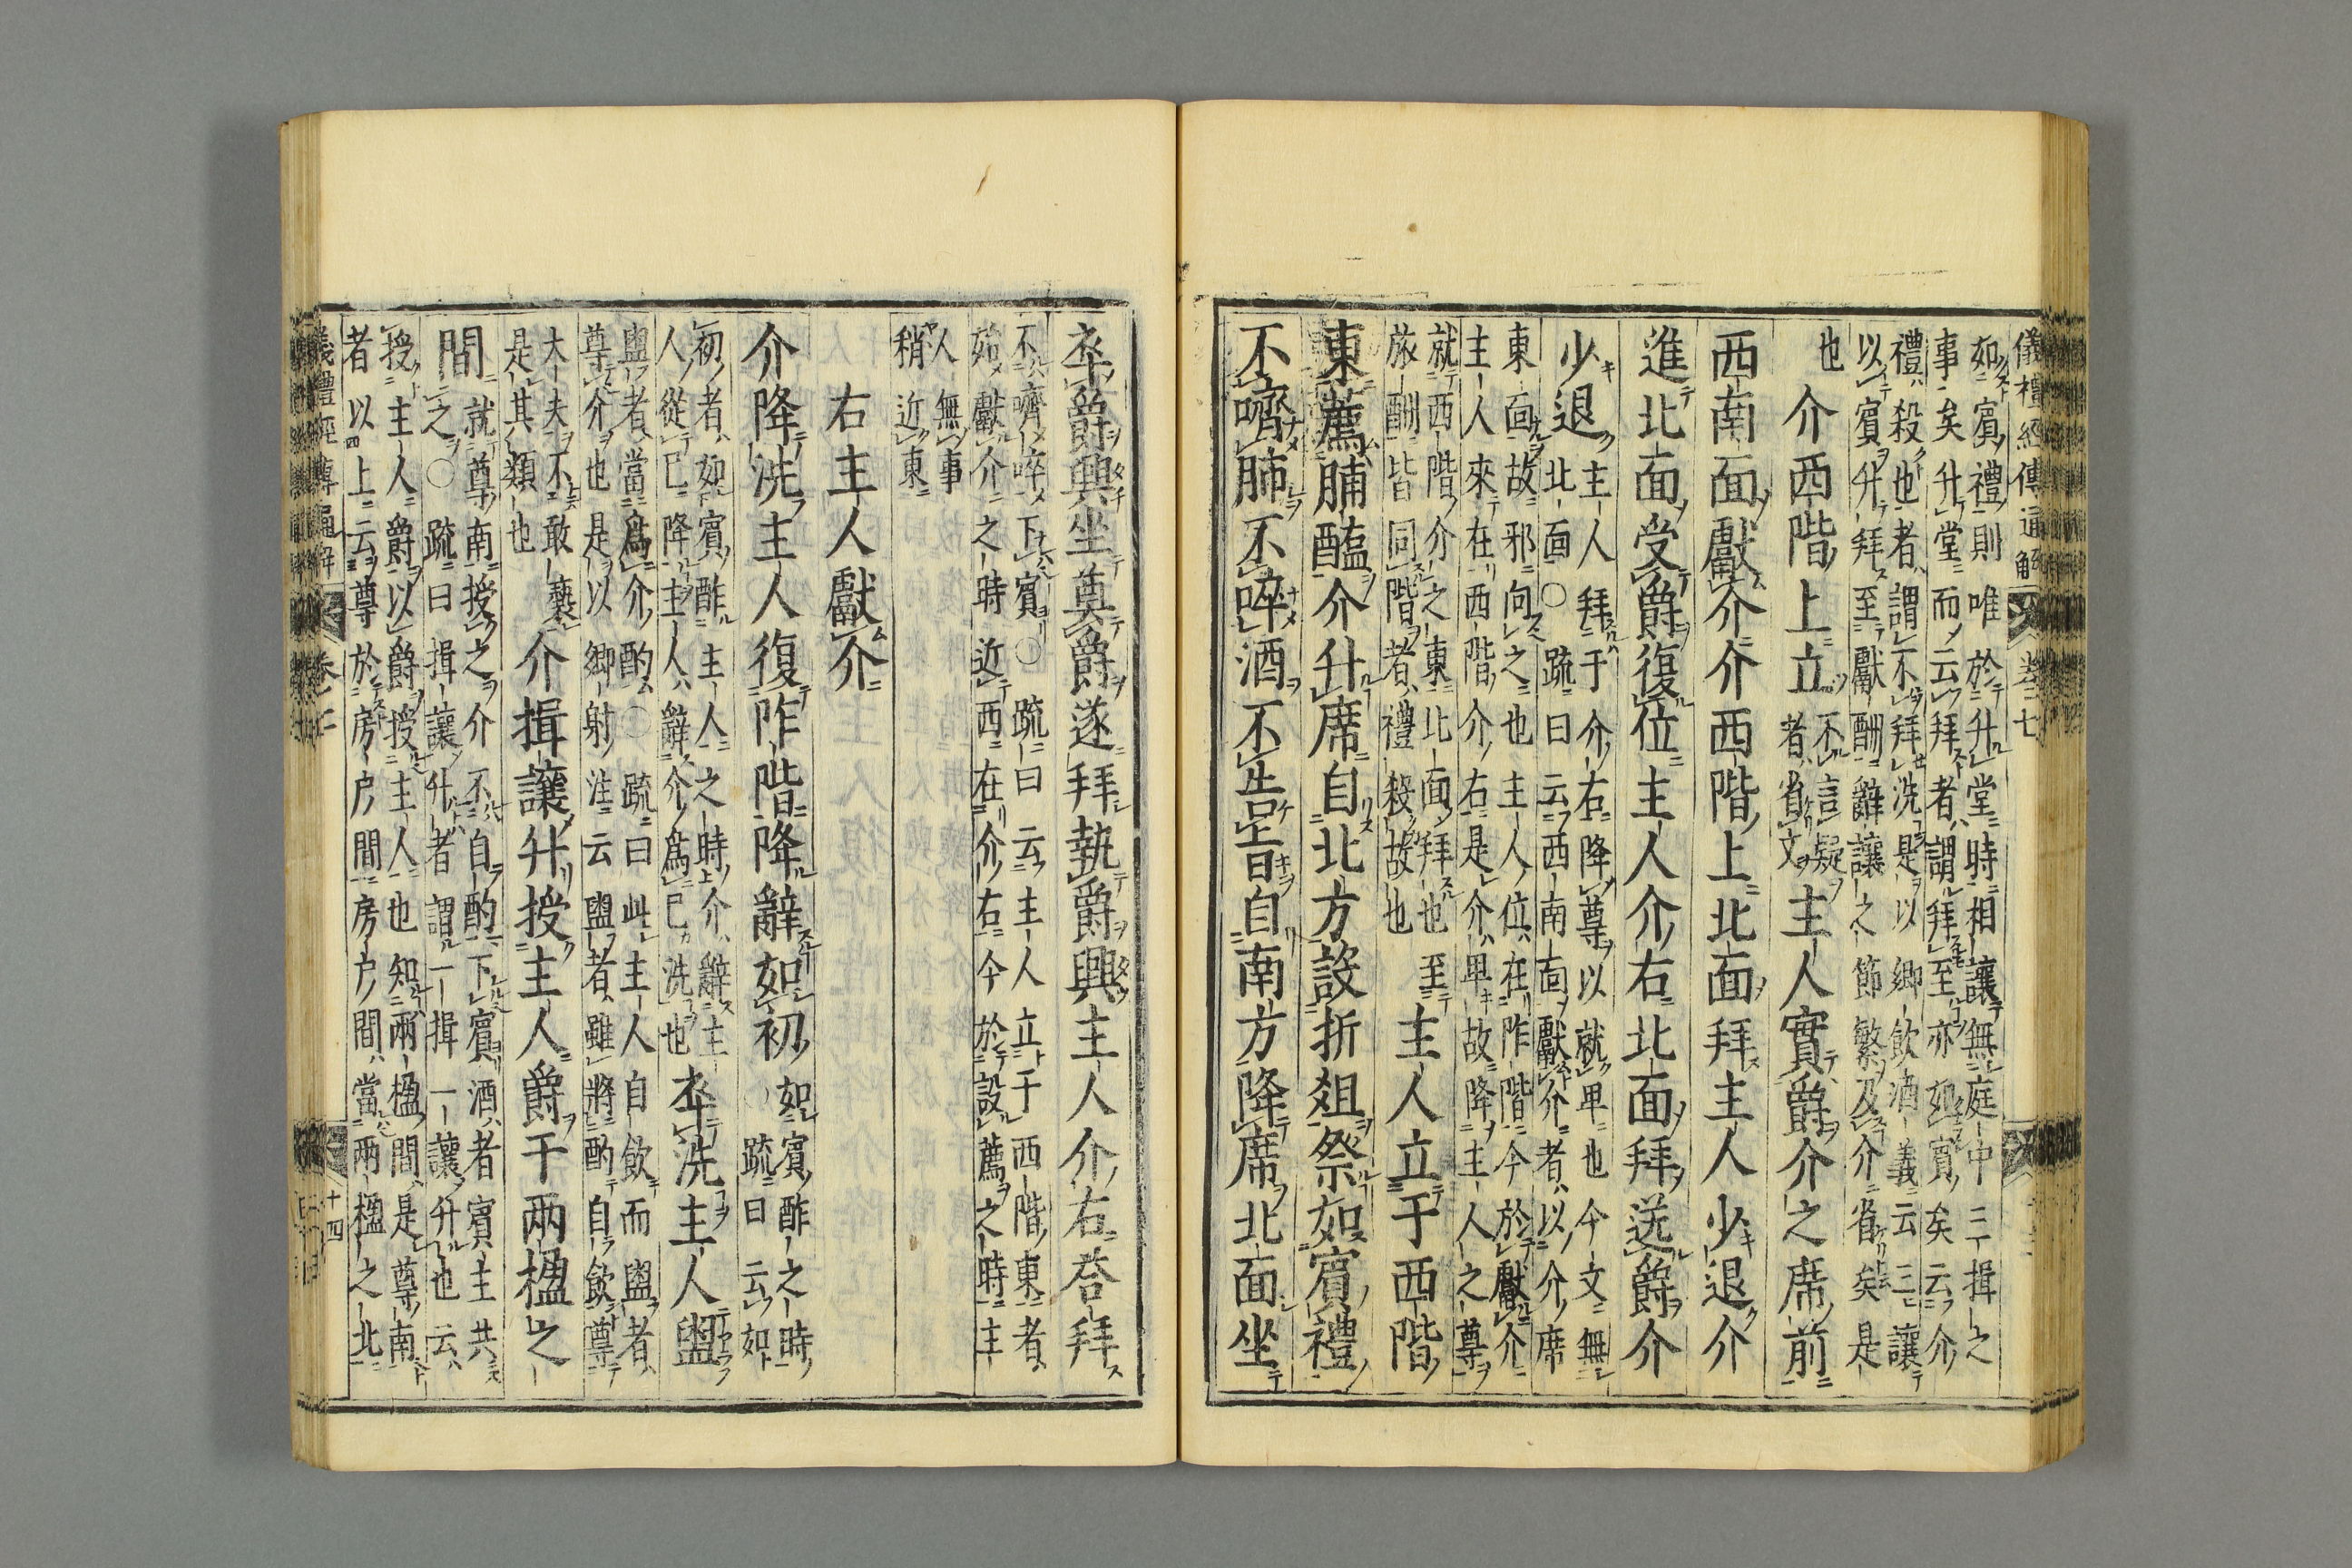 儀禮經傳通解 卷七
如賓禮則唯於升堂時相讓無庭中三揖之
事矣升堂而云拜者謂拜至亦如賓矣云介
禮殺也者謂不拜洗是以鄉飲酒義云三讓
以賓升拜至獻酬辭讓之節繁及介省矣是
也 介西階上立 不言疑者省文 主人實爵介之席前
西南面獻介介西階上北面拜主人少退介
進北面受爵復位主人介右北面拜送爵介
少退 主人拜于介右降尊以就卑也今文無
北面○疏曰云西南面獻介者以介席
東面故邪向之也主人位在阼階今於獻介
主人來在西階介右是介卑故降主人之尊
就西階介之東北面拜也至
旅酬皆同階者禮殺故也 主人立于西階
東薦脯醢介升席自北方設折俎祭如賓禮
不嚌肺不啐酒不告旨自南方降席北面坐
卒爵興坐奠爵遂拜執爵興主人介右荅拜
不嚌啐下賓○疏曰云主人立于西階東者
如獻介之時近西在介右今於設薦之時主
人無事
稍近東
右主人獻介
介降洗主人復阼階降辭如初 如賓酢之時
○疏曰云如
初者如賓酢主人之時介辭主
人從已降主人辭介爲已洗也 卒洗主人盥
盥者當爲介酌○疏曰此主人自飲而盥者
尊介也是以鄉射注云盥者雖將酌自飲尊
大夫不敢褻
是其類也 介揖讓升授主人爵于兩楹之
間 就尊南授之介不自酌下賓酒者賓主共
之○疏曰揖讓升者謂一揖一讓升也云
授主人爵以爵授主人也知兩楹間是尊南
者以上云尊於房戶間房戶間當兩楹之北
儀禮經傳通解 卷七 十四